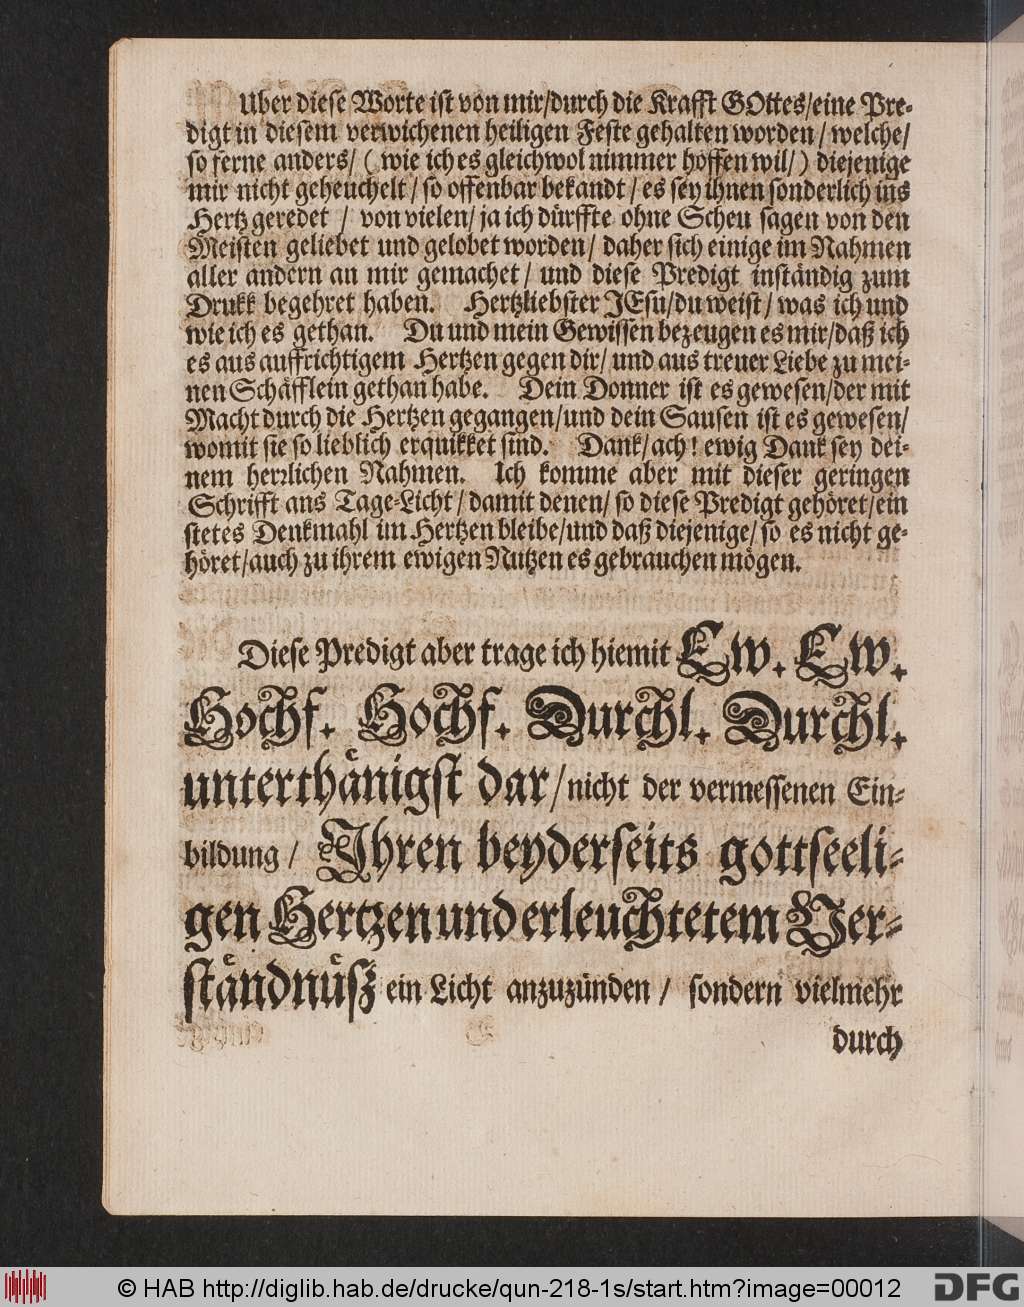 Uber diese Worte ist von mir/durch die Krafft GOttes/eine Pre-
digt in diesem verwichenen heiligen Feste gehalten worden/ welche/
so ferne anders/ ( wie ich es gleichwol nimmer hoffen wil/ ) diejenige
mir nicht geheuchelt / so offenbar bekandt / es sey ihnen sonderlich ins
Hertz geredet / von vielen/ ja ich dürffte ohne Scheu sagen von den
Meisten geliebet und gelobet worden/ daher sich einige im Nahmen
aller andern an mir gemachet / und diese Predigt inständig zum
Drukk begehret haben. Hertzliebster JEsu/du weist / was ich und
wie ich es gethan. Du und mein Gewissen bezeugen es mir/daß ich
es aus auffrichtigem Hertzen gegen dir/ und aus treuer Liebe zu mei-
nen Schäfflein gethan habe. Dein Donner ist es gewesen/der mit
Macht durch die Hertzen gegangen/und dein Sausen ist es gewesen/
womit sie so lieblich erquikket sind. Dank/ach! ewig Dank sey dei-
nem herrlichen Nahmen. Ich komme aber mit dieser geringen
Schrifft ans Tage-Licht / damit denen/ so diese Predigt gehöret/ein
stetes Denkmahl im Hertzen bleibe/und daß diejenige/ so es nicht ge-
höret/auch zu ihrem ewigen Nutzen es gebrauchen mögen.
Diese Predigt aber trage ich hiemit Ew. Ew.
Hochf. Hochf. Durchl. Durchl.
unterthänigst dar/nicht der vermessenen Ein-
bildung / Ihren beyderseits gottseeli-
gen Hertzen und erleuchtetem Ver-
ständnüß ein Licht anzuzünden / sondern vielmehr
durch
© HAB http://diglib.hab.de/drucke/qun-218-1s/start.htm?image=00012
DFG